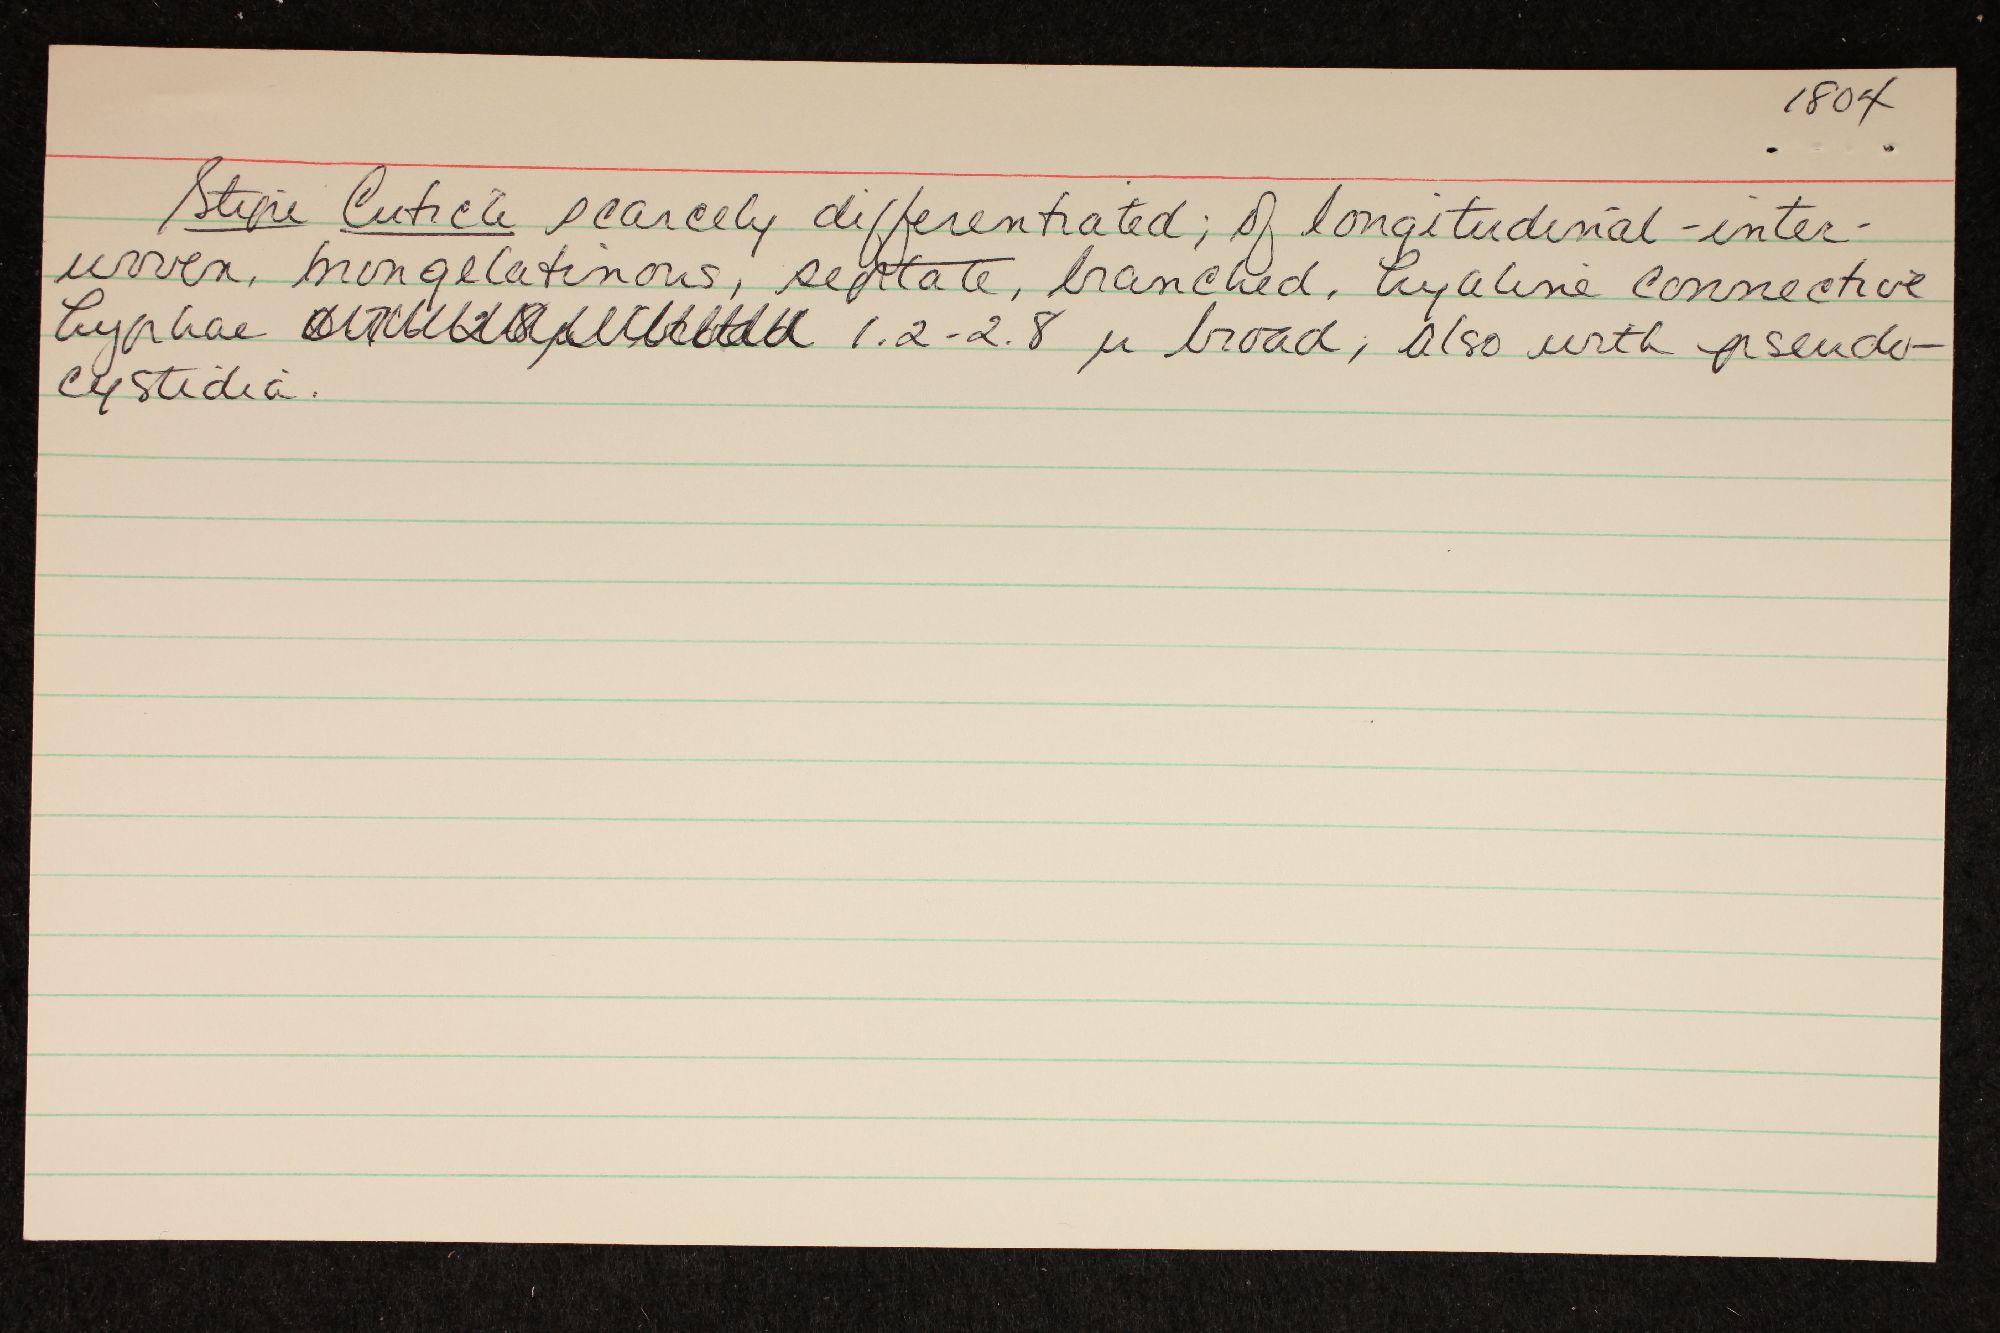 1804
Stipe Cuticle scarcely differentiated; of longitudinal-inter-
woven, nongelatinous, septate, branched, hyaline connective
hyphae 1.2-2.8 μ broad; also with pseudo-
cystidia.